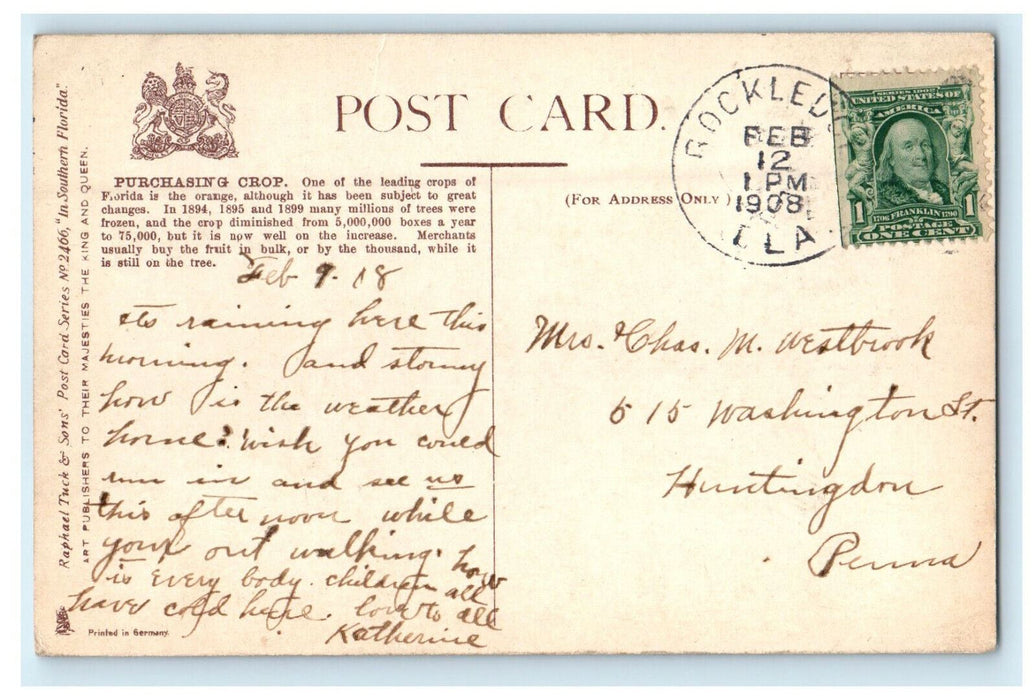 POST CARD.
PURCHASING CROP. One of the leading crops of
Florida is the orange, although it has been subject to great
changes. In 1894, 1895 and 1899 many millions of trees were
frozen, and the crop diminished from 5,000,000 boxes a year
to 75,000, but it is now well on the increase. Merchants
usually buy the fruit in bulk, or by the thousand, while it
is still on the tree.
Feb 9. 08
its raining here this
morning. and stormy
how is the weather
home? wish you could
run in and see us
this after noon while
your out walking. how
is every body. children all
have cold here. love to all
Katherine
Raphael Tuck & Sons' Post Card Series No 2466, "In Southern Florida."
ART PUBLISHERS TO THEIR MAJESTIES THE KING AND QUEEN.
Printed in Germany.
(FOR ADDRESS ONLY)
ROCKLEDGE
FEB
12
1 PM
1908
FLA.
SERIES 1902
UNITED STATES OF
AMERICA
1706 FRANKLIN 1790
POSTAGE
1 ONE CENT 1
Mrs. Chas. M. Westbrook
515 Washington St.
Huntingdon
Penna